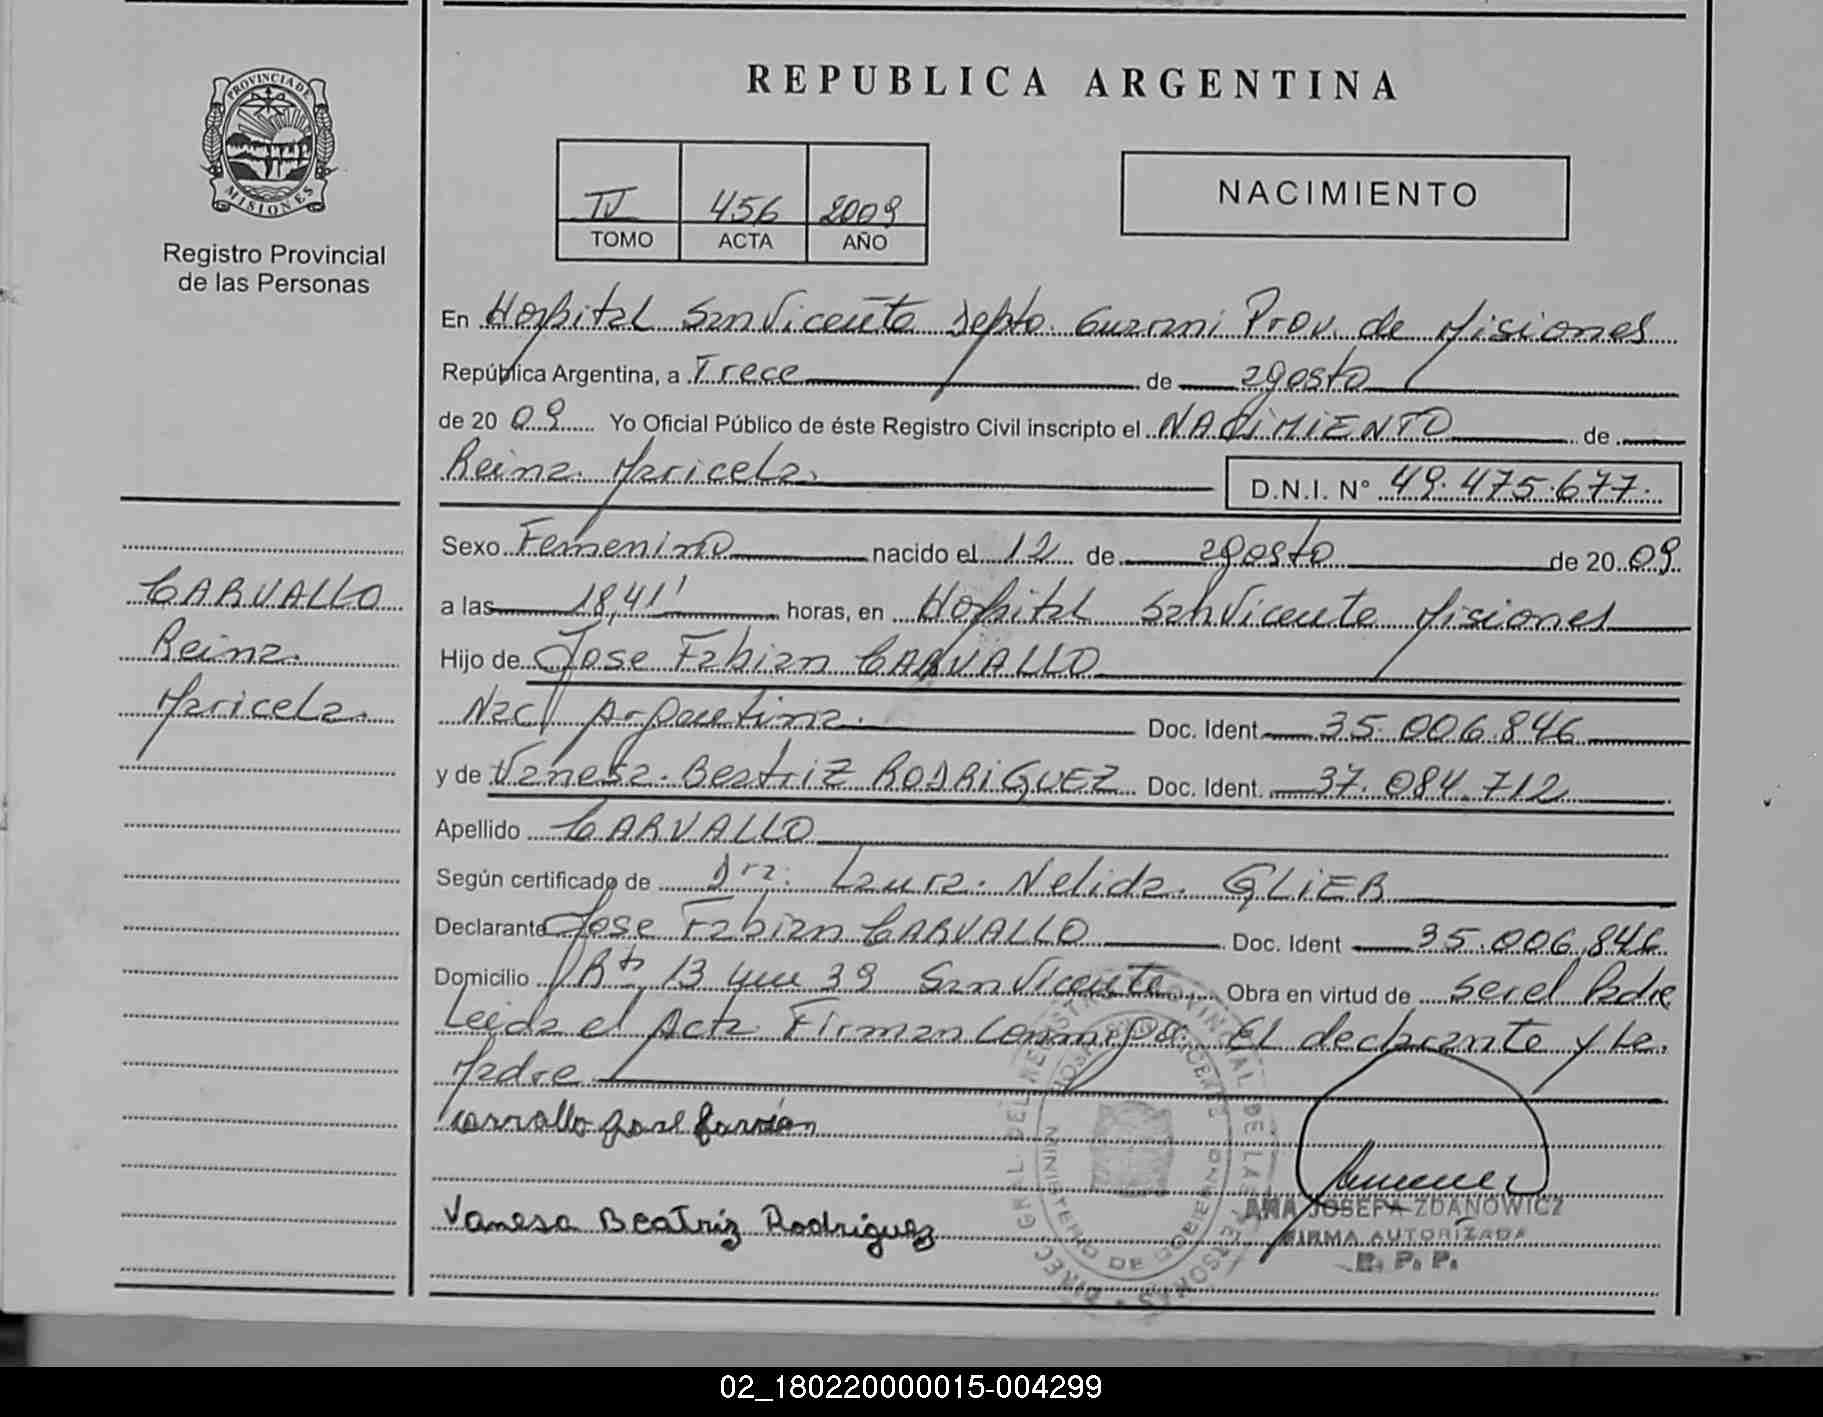 REPUBLICA ARGENTINA
PROVINCIA DE MISIONES
Registro Provincial
de las Personas
IV 456 2009
TOMO ACTA AÑO
NACIMIENTO
En Hospital San Vicente Depto. Guarani Prov. de Misiones
República Argentina, a Trece de agosto
de 20 09 Yo Oficial Público de éste Registro Civil inscripto el NACIMIENTO de
Reina Maricela
D.N.I. N° 49.475.677.
Sexo Femenino nacido el 12 de agosto de 20 09
a las 18,41' horas, en Hospital San Vicente Misiones
Hijo de Jose Fabian CARVALLO
Nac Argentina. Doc. Ident. 35.006.846
y de Vanesa Beatriz RODRIGUEZ Doc. Ident. 37.084.712
Apellido CARVALLO
Según certificado de Dra. Laura Nelida GLIER
Declarante Jose Fabian CARVALLO Doc. Ident 35.006.846
Domicilio Rta 13 39 San Vicente Obra en virtud de ser el Padre
Leida el Acta Firman Conmigo El declarante y la
Madre
CARVALLO
Reina
Maricela
Carvallo Jose fabian
Vanesa Beatriz Rodriguez
ANA JOSEFA ZDANOWICZ
FIRMA AUTORIZADA
R. P. P.
02_180220000015-004299